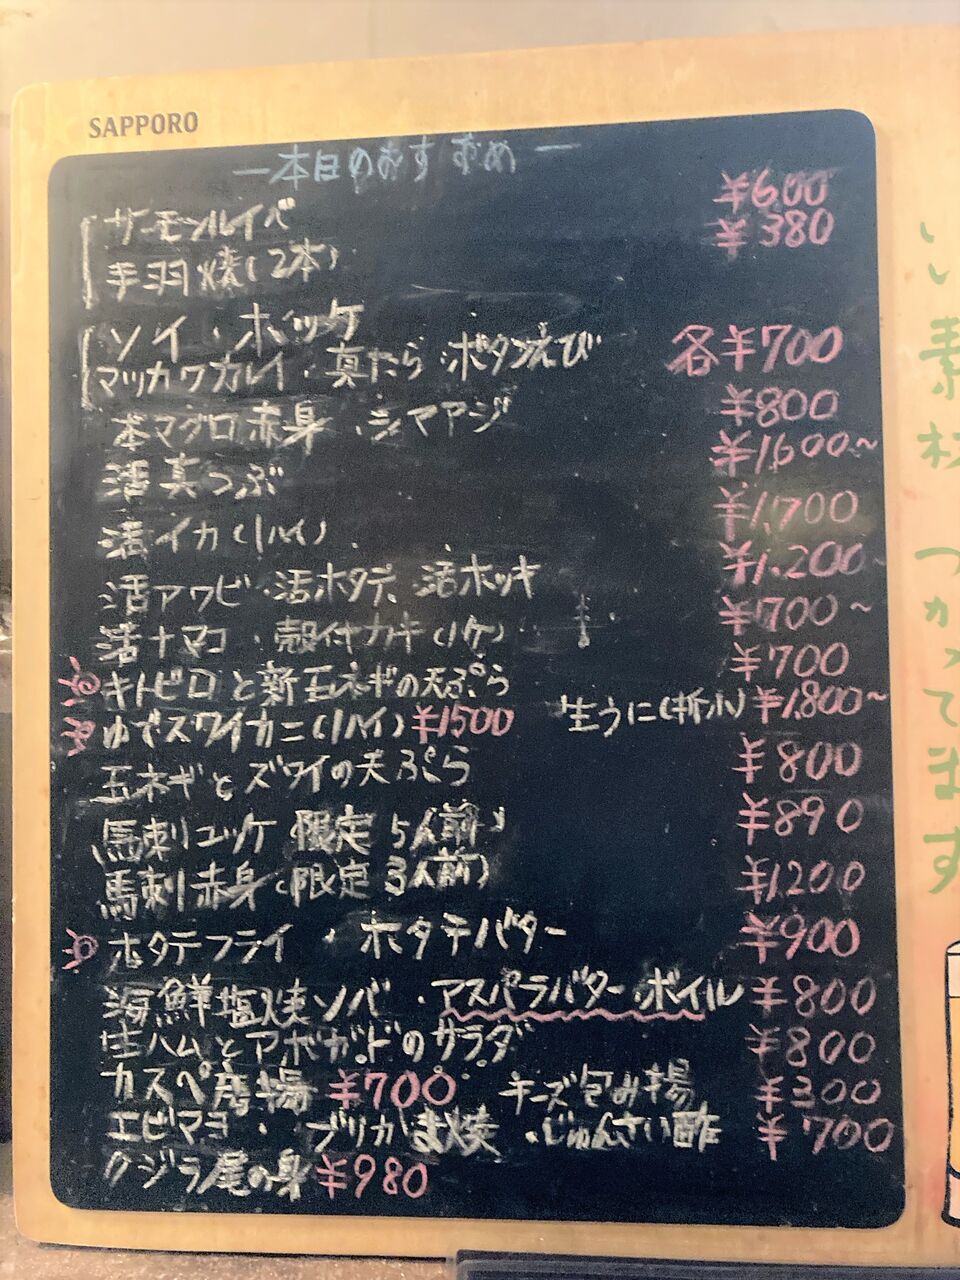 SAPPORO
ー本日のおすすめー
サーモンルイベ ¥600
手羽焼(2本) ¥380
ソイ・ホッケ
マツカワカレイ・真たら・ボタンえび 各¥700
本マグロ赤身・シマアジ ¥800
活真つぶ ¥1,600~
活イカ(1ハイ) ¥1,700
活アワビ・活ホタテ、活ホッキ ¥1,200~
活ナマコ・殻付カキ(1ケ) ¥700~
キトピロと新玉ネギの天ぷら ¥700
ゆでズワイカニ(1ハイ)¥1500 生うに(折小)¥1,800~
玉ネギとズワイの天ぷら ¥800
馬刺ユッケ 限定5人前 ¥890
馬刺赤身(限定3人前) ¥1200
ホタテフライ・ホタテバター ¥900
海鮮塩焼ソバ・アスパラバター・ボイル ¥800
生ハムとアボガドのサラダ ¥800
カスベ唐揚 ¥700 チーズ包み揚 ¥300
エビマヨ・ブリカま焼・じゅんさい酢 ¥700
クジラ尾の身 ¥980
い素材つかってます